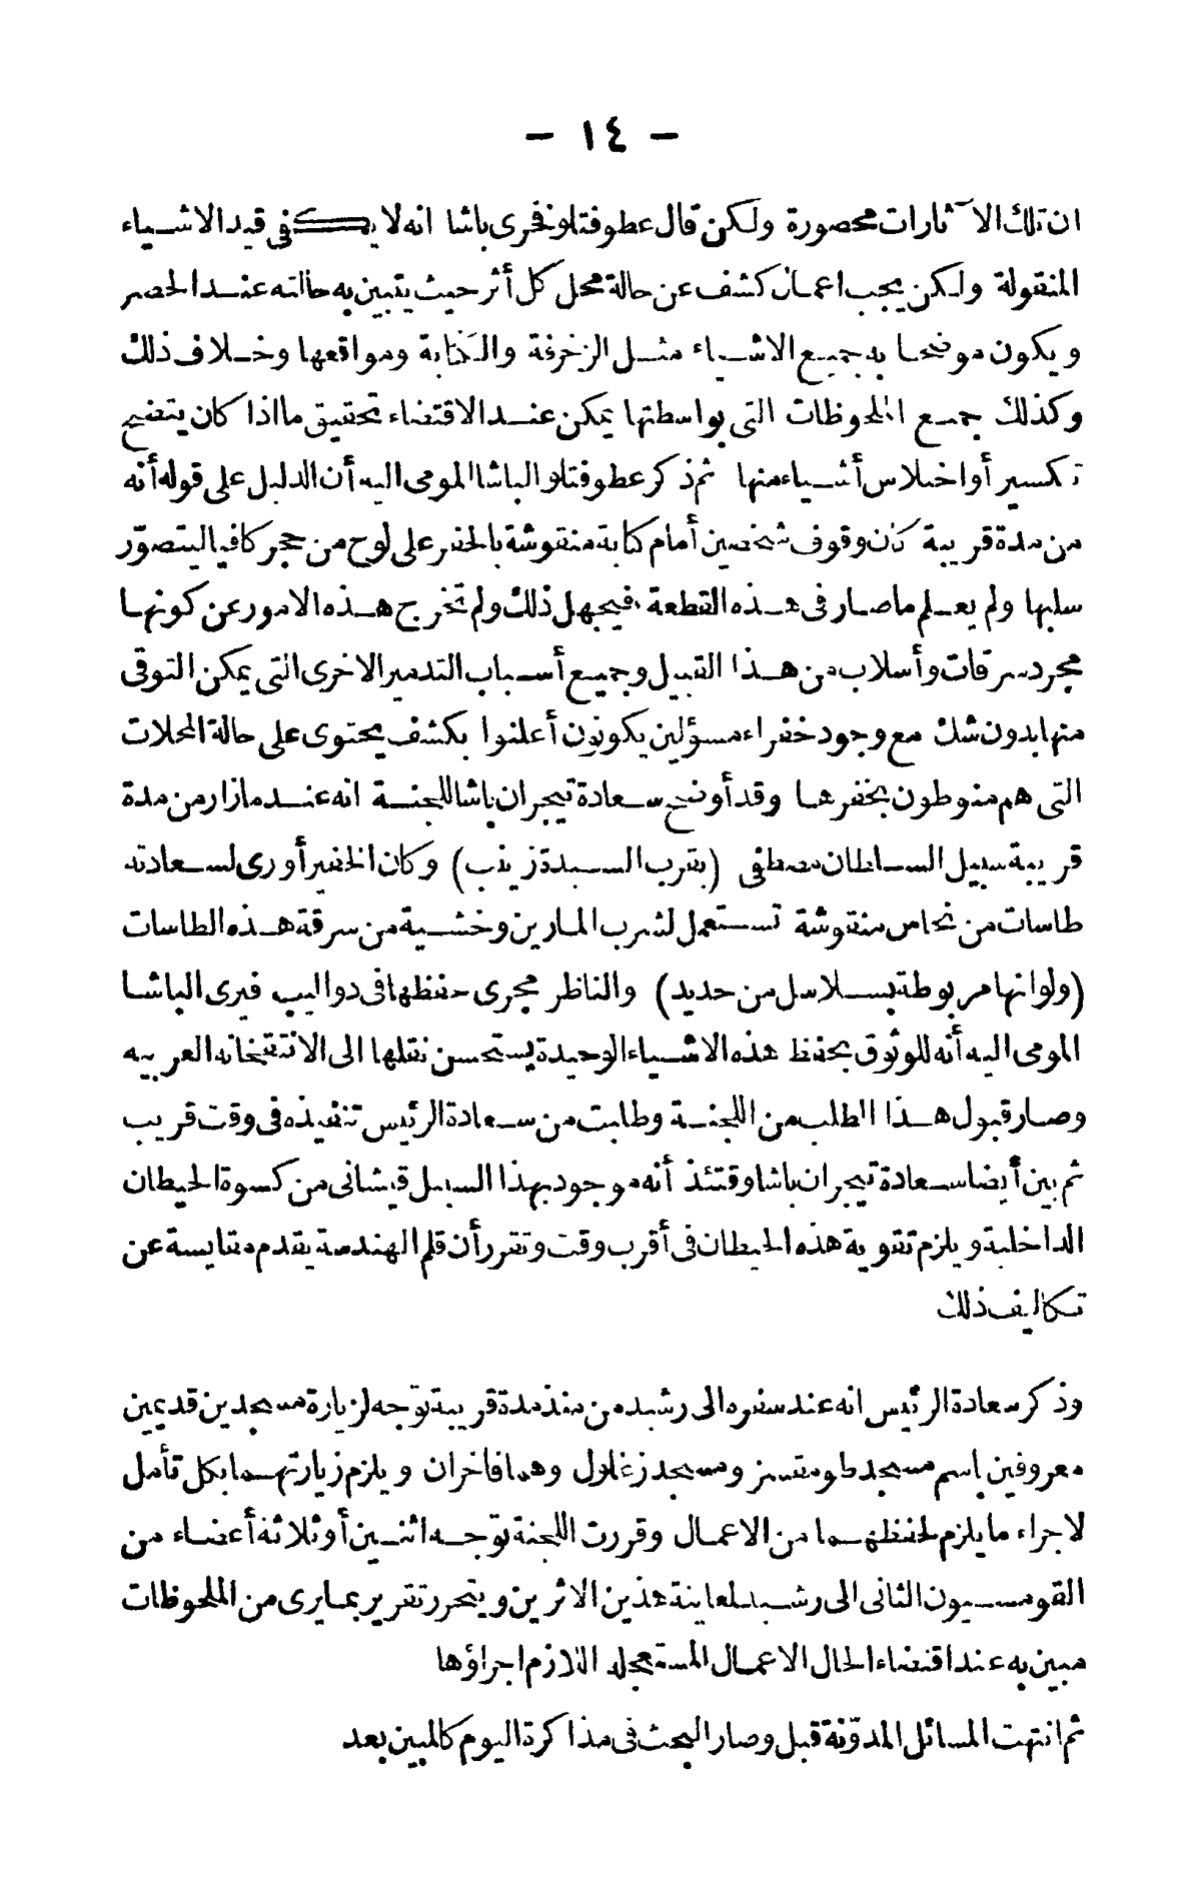 - ١٤ -
ان تلك الآثارات محصورة ولكن قال عطوفتلو فخرى باشا انه لا يكفى قيد الاشياء
المنقولة ولكن يجب اعمال كشف عن حالة محل كل أثر حيث يتبين به حالته عند الحصر
ويكون موضحا به جميع الاشياء مثل الزخرفة والكتابة ومواقعها وخلاف ذلك
وكذلك جميع الملحوظات التى بواسطتها يمكن عند الاقتضاء تحقيق ما اذا كان يتضح
تكسير أو اختلاس أشياء منها ثم ذكر عطوفتلو الباشا المومى اليه أن الدليل على قوله أنه
من مدة قريبة كان وقوف شخصين أمام كتابة منقوشة بالحفر على لوح من حجر كافيا ليتصوّر
سلبها ولم يعلم ما صار فى هذه القطعة فيجهل ذلك ولم تخرج هذه الامور عن كونها
مجرد سرقات وأسلاب من هذا القبيل وجميع أسباب التدمير الاخرى التى يمكن التوقى
منها بدون شك مع وجود خفراء مسؤلين يكونون أعلنوا بكشف يحتوى على حالة المحلات
التى هم منوطون بخفرها وقد أوضح سعادة تيجران باشا للجنة انه عند ما زار من مدة
قريبة سبيل السلطان مصطفى (بقرب السيدة زينب) وكان الخفير أورى لسعادته
طاسات من نحاس منقوشة تستعمل لشرب المارين وخشية من سرقة هذه الطاسات
(ولو انها مربوطة بسلاسل من حديد) والناظر مجرى حفظها فى دواليب فيرى الباشا
المومى اليه أنه للوثوق بحفظ هذه الاشياء الوحيدة يستحسن نقلها الى الانتتخانه العربيه
وصار قبول هذا الطلب من اللجنة وطلبت من سعادة الرئيس تنفيذه فى وقت قريب
ثم بين أيضا سعادة تيجران باشا وقتئذ أنه موجود بهذا السبيل قيشانى من كسوة الحيطان
الداخلية ويلزم تقوية هذه الحيطان فى أقرب وقت وتقرر أن قلم الهندسة يقدم مقايسة عن
تكاليف ذلك
وذكر سعادة الرئيس انه عند سفره الى رشيد من منذ مدة قريبة توّجه لزيارة مسجدين قديمين
معروفين باسم مسجد طومقسز ومسجد زغلول وهما فاخران ويلزم زيارتهما بكل تأمل
لاجراء ما يلزم لحفظهما من الاعمال وقررت اللجنة توّجه اثنين أو ثلاثة أعضاء من
القومسيون الثانى الى رشيد لمعاينة هذين الاثرين ويتحرر تقرير بما يرى من الملحوظات
مبين به عند اقتضاء الحال الاعمال المستعجله اللازم اجراؤها
ثم انتهت المسائل المدوّنة قبل وصار البحث فى مذاكرة اليوم كالمبين بعد